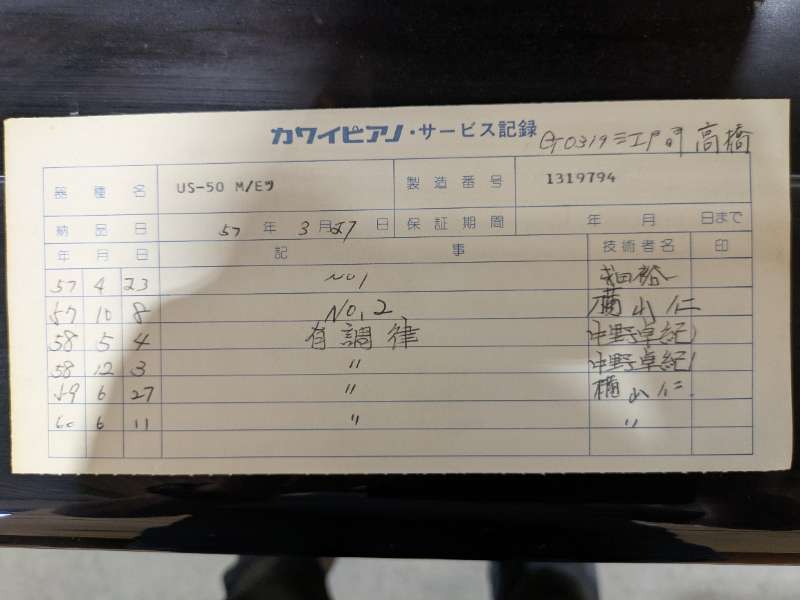 カワイピアノ・サービス記録 高橋
器種名 US-50 M/Eツ 製造番号 1319794
納品日 57年3月27日 保証期間 年 月 日まで
年 月 日 記事 技術者名 印
57 4 23 No 1
57 10 8 No, 2 山仁
58 5 4 有調律 中野卓紀
58 12 3 〃 中野卓紀
59 6 27 〃 山仁
60 6 11 〃 〃